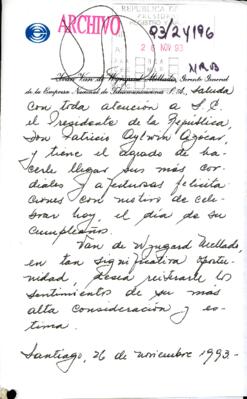 REPUBLICA DE
ARCHIVO
93/24196
26 NOV 93
NRB
Iván Van de Wyngard Mellado, Gerente General
de la Empresa Nacional de Telecomunicaciones S.A., saluda
con toda atención a S.E.
el Presidente de la República,
Don Patricio Aylwin Azócar,
y tiene el agrado de ha-
cerle llegar sus más cor-
diales y afectuosas felicita
ciones con motivo de cele-
brar hoy, el día de su
cumpleaños.
Van de Wyngard Mellado,
en tan significativa oportu-
nidad, desea reiterarle los
sentimientos de su más
alta consideración y es-
tima.
Santiago, 26 de noviembre 1993.-